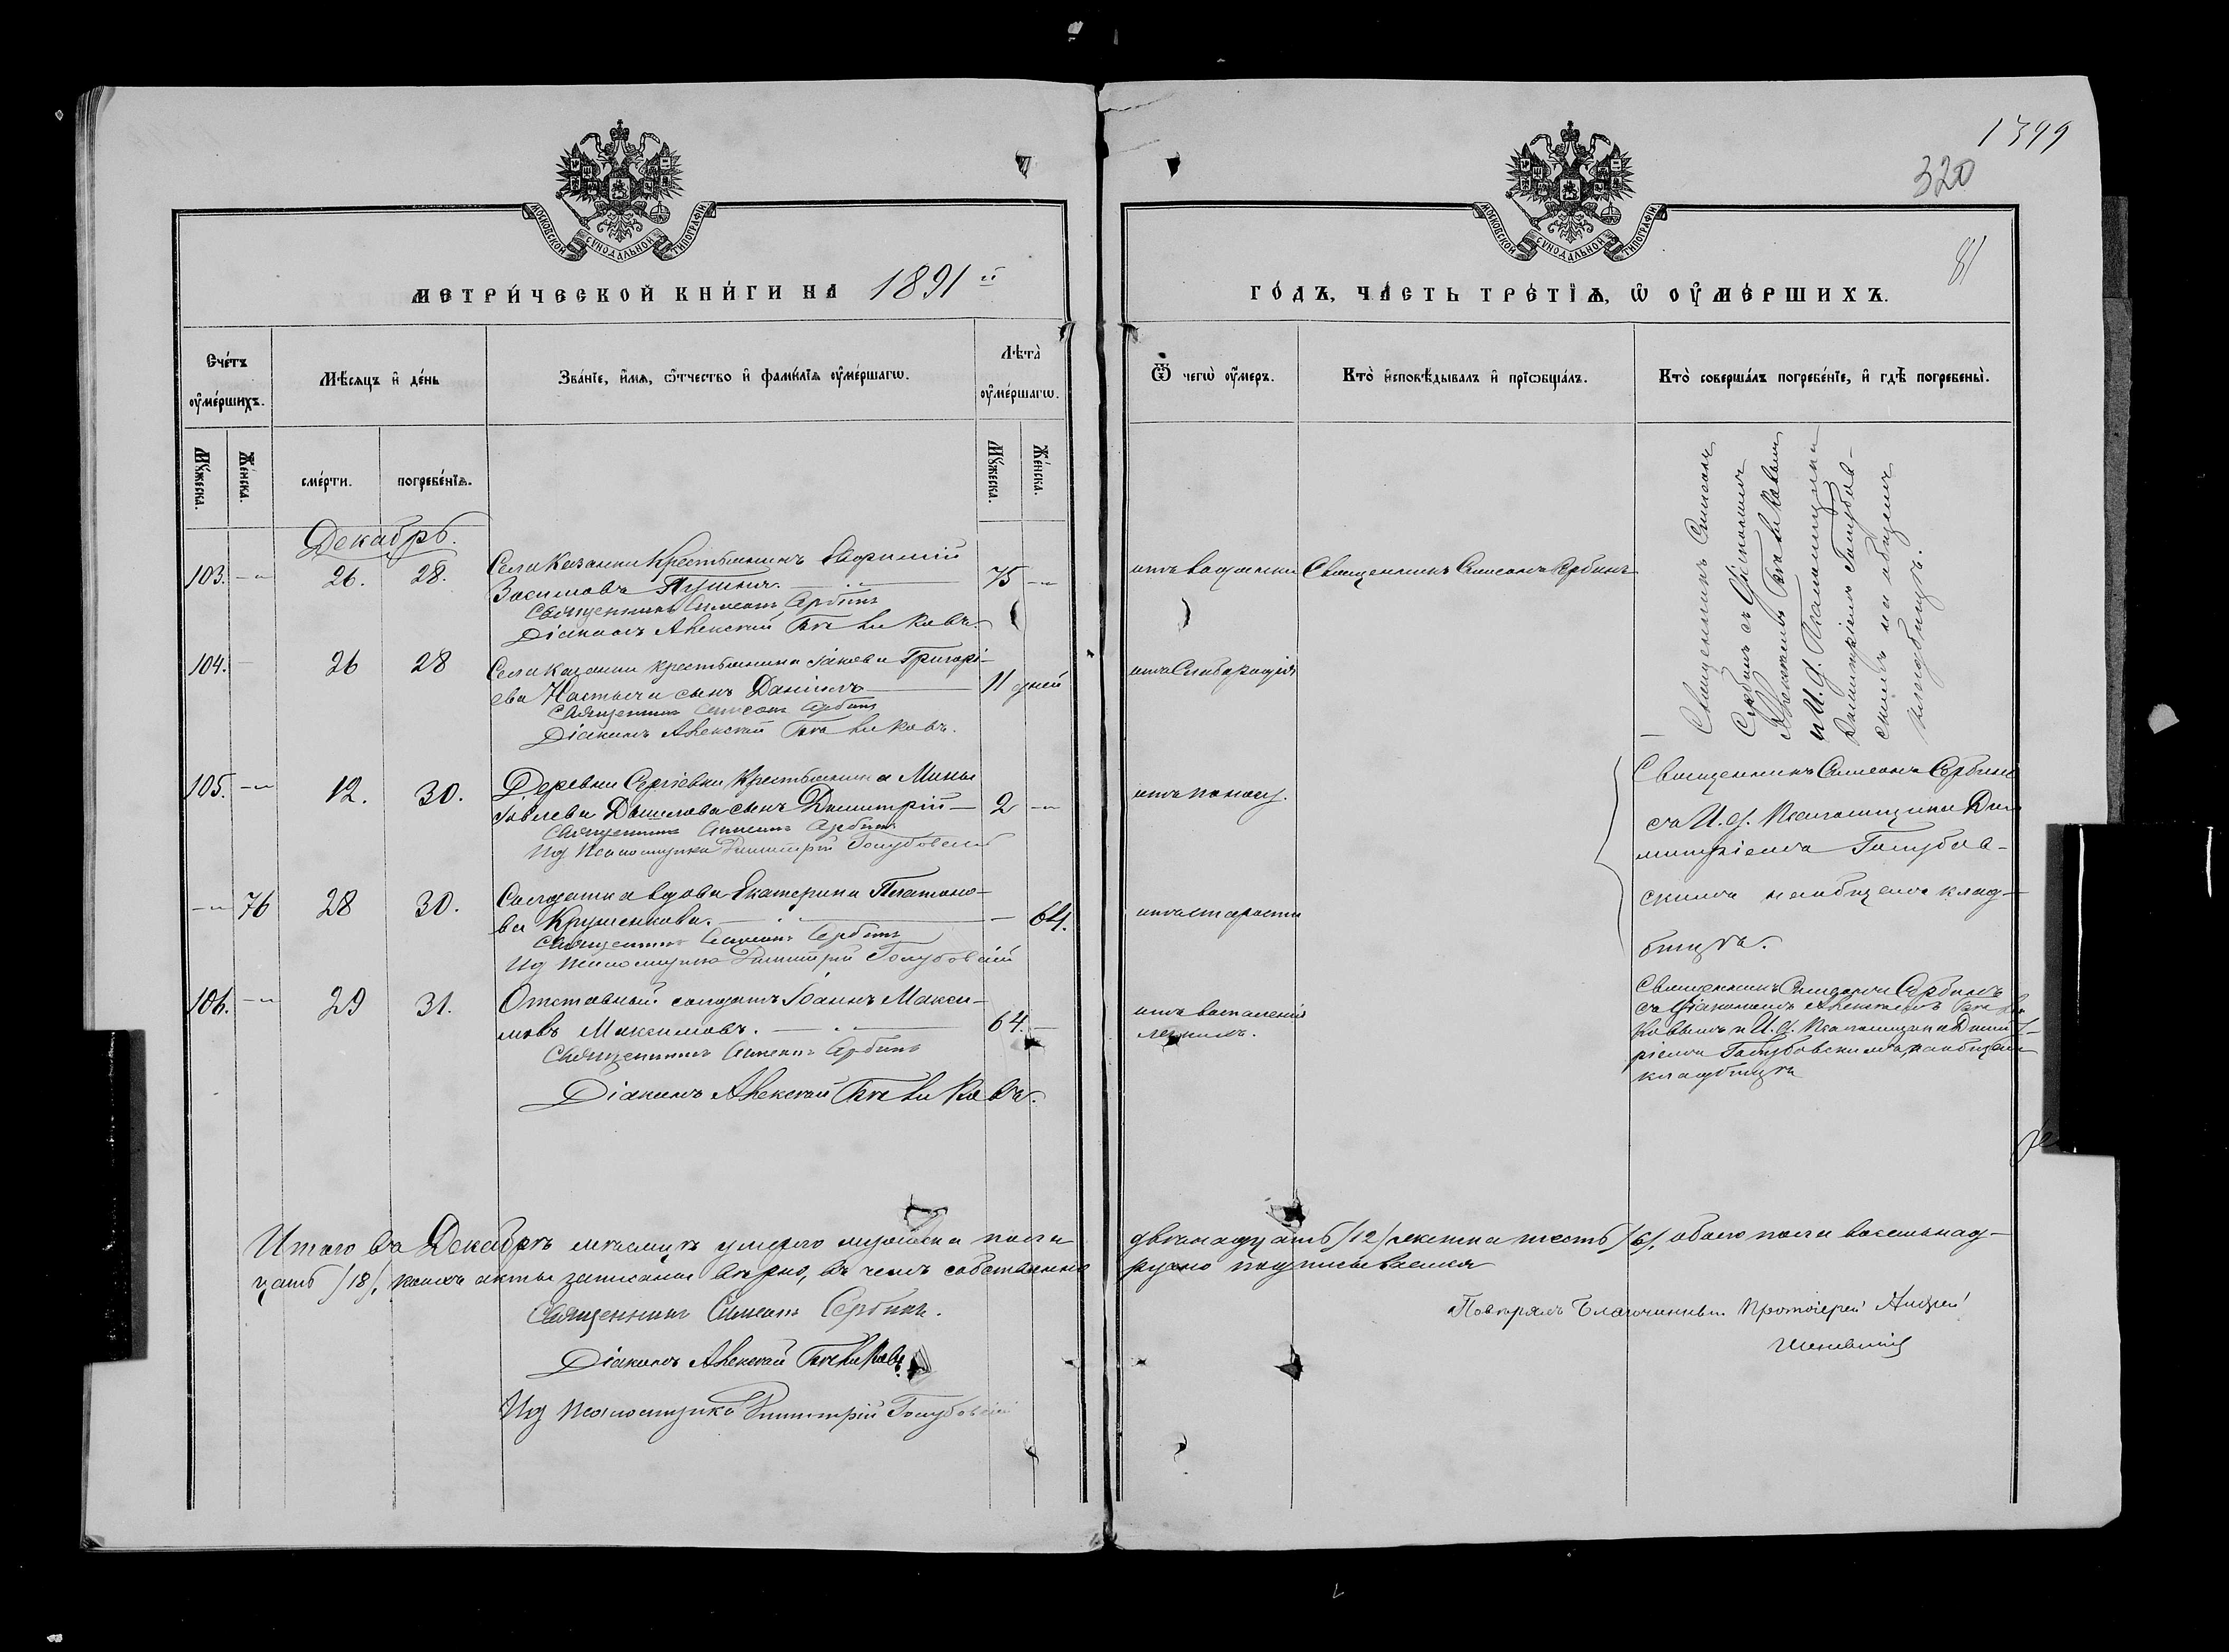 1399
320
81
МОСКОВСКОЙ СУНОДАЛЬНОЙ ТИПОГРАФІИ
МОСКОВСКОЙ СУНОДАЛЬНОЙ ТИПОГРАФІИ
МЕТРИ́ЧЕСКОЙ КНИ́ГИ НА 1891й
ГО́ДЪ, ЧА́СТЬ ТРЕ́ТІѦ, Ѡ҆ ОУ҆МЕ́РШИХЪ.
Сче́тъ оу҆ме́ршихъ.
Мѣ́сѧцъ и҆ де́нь
Зва́нїе, и҆́мѧ, ѻ҆́тчество и҆ фами́лїѧ оу҆ме́ршагѡ.
Лѣта̀ оу҆ме́ршагѡ.
Ѿ чегѡ̀ оу҆́меръ.
Кто̀ и҆сповѣ́дывалъ и҆ прїѡбща́лъ.
Кто̀ соверша́лъ погребе́нїе, и҆ гдѣ̀ погребены̀.
Мꙋ́жеска.
Же́нска.
сме́рти.
погребе́нїѧ.
Мꙋ́жеска.
Же́нска.
Декабрь.
103. 26. 28. Села Казанки Крестьянинъ Евфимій 75
Зосимовъ
Священникъ Симеонъ Сербинъ
Діаконъ Алексѣй
Священникъ Симеонъ Сербинъ
Священникъ Симеонъ
Сербинъ съ Діакономъ
Алексѣемъ
и И. д. Псаломщика
Димитріемъ Голубов-
скимъ на общемъ
кладбищѣ.
104. 26 28 Села Казанки крестьянина Іакова Григорі-
ева сынъ Даніилъ 11 дней
Священникъ Симеонъ Сербинъ
Діаконъ Алексѣй
отъ слаборадія
105. 12. 30. Деревни Сергіевки Крестьянина Мины
сынъ Димитрій 2
Священникъ Симеонъ Сербинъ
Ид Псаломщика Димитрій Голубовскій
отъ поносу.
Священникъ Симеонъ Сербинъ
съ И. д. Псаломщика Ди-
митріемъ Голубов-
скимъ на общемъ клад-
бищѣ.
76 28 30. Солдатка вдова Екатерина Платоно-
ва 64.
Священникъ Симеонъ Сербинъ
Ид Псаломщика Димитрій Голубовскій
отъ старости
106. 29 31. Отставной солдатъ Іоаннъ Макси-
мовъ Максимовъ. 64.
Священникъ Симеонъ Сербинъ
Діаконъ Алексѣй
отъ воспаленія
легкихъ.
Священникъ Симеонъ Сербинъ
съ Діакономъ Алексѣемъ
и И. д. Псаломщика Димит-
ріемъ Голубовскимъ, на общемъ
кладбищѣ
Итого въ Декабрѣ мѣсяцѣ умерло мужеска пола двѣнадцать /12/ женска шесть /6/, обоего пола восемнад-
цать /18/, коихъ акты записаны вѣрно, въ чемъ собственно ручно подписываемся
Священникъ Симеонъ Сербинъ.
Діаконъ Алексѣй
Ид Псаломщика Димитрій Голубовскій
Повѣрялъ Благочинный Протоіерей Андрей